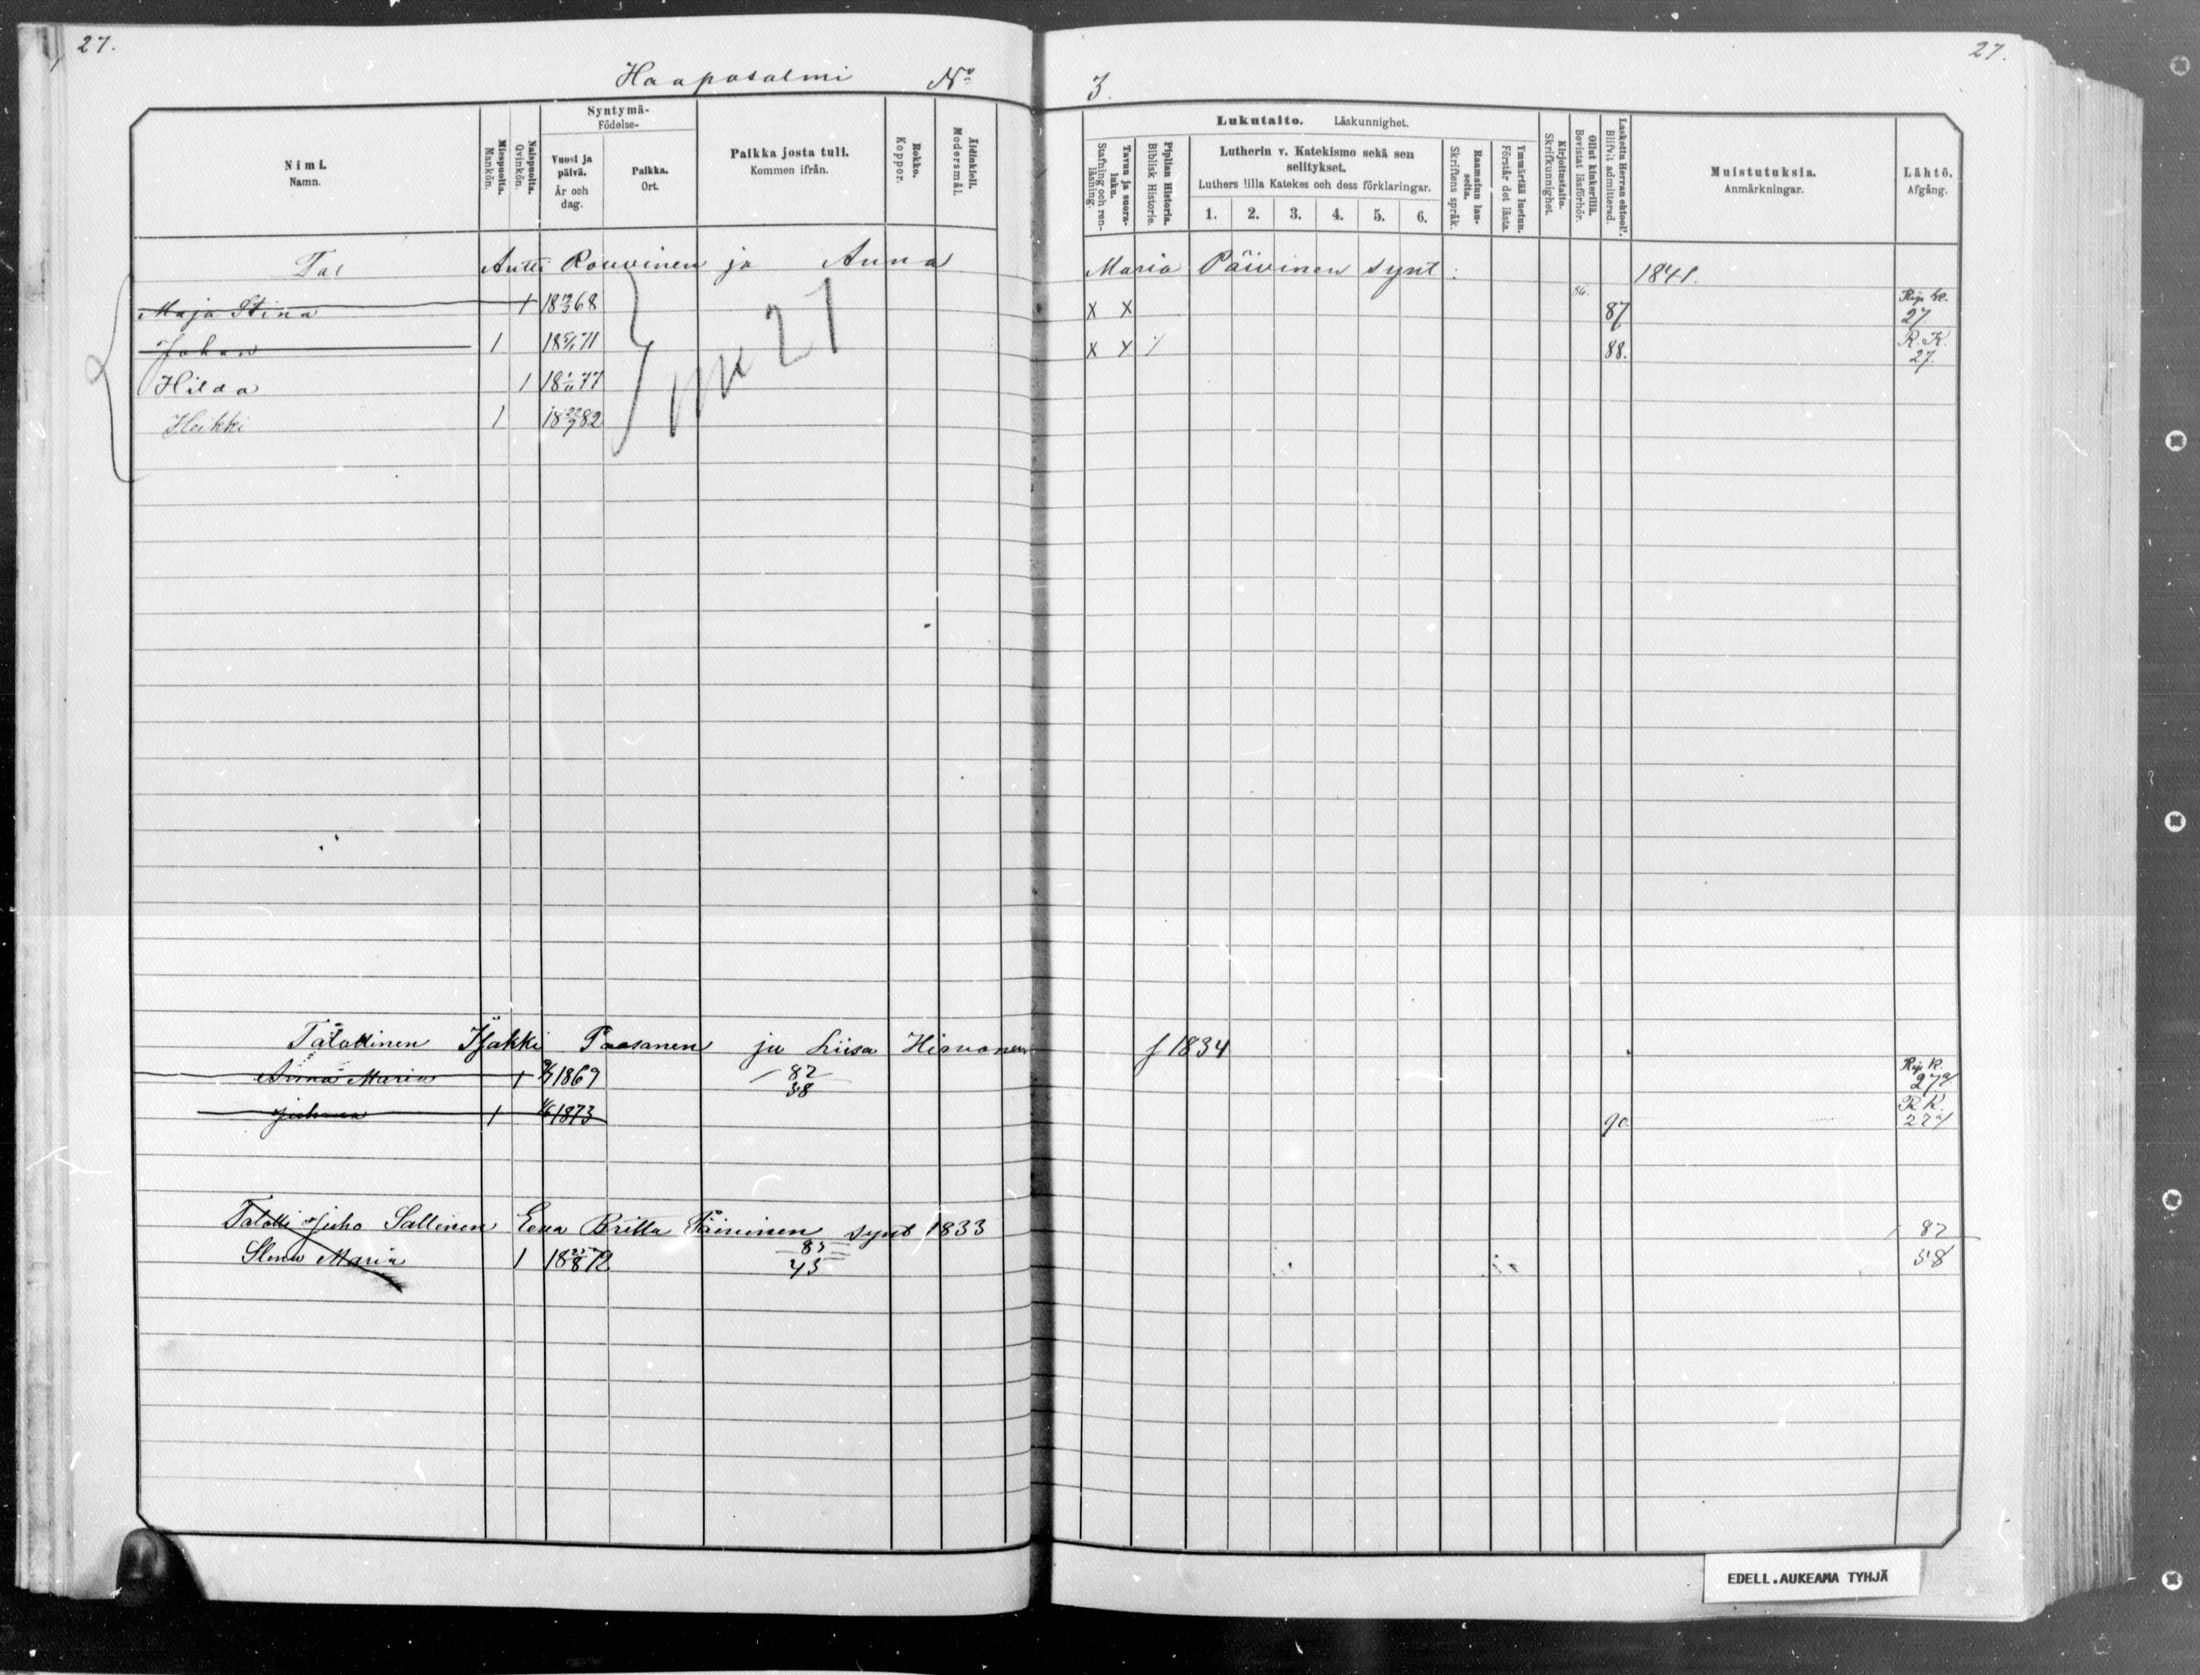 27.
27.
Haaposalmi No 3.
Nimi.
Namn.
Miespuolta.
Mankön.
Naispuolta.
Qvinkön.
Syntymä-
Födelse-
Vuosi ja päivä.
År och dag.
Paikka.
Ort.
Paikka josta tuli.
Kommen ifrån.
Rokko.
Koppor.
Äidinkieli.
Modersmål.
Lukutaito. Läskunnighet.
Tavuu ja suora-luku.
Stafning och ren-läsning.
Piplian Historia.
Biblisk Historie.
Lutherin v. Katekismo sekä sen selitykset.
Luthers lilla Katekes och dess förklaringar.
1. 2. 3. 4. 5. 6.
Raamatun lauseita.
Skriftens språk.
Ymmärtää luetun.
Förstår det lästa.
Kirjoitustaito.
Skrifkunnighet.
Ollut kinkerillä.
Bevistat läsförhör.
Laskettu Herran ehtool.
Blifvit admitterad.
Muistutuksia.
Anmärkningar.
Lähtö.
Afgång.
Tal Antti Rouvinen ja Anna Maria Päivinen synt. 1841.
Maja Stina 1 18 68 X X 86. 87 Rip. k. 27
Johan 1 18 71 X X 88. R. K. 27
Hilda 1 18 77
Heikki 1 18 22/9 82
27
Talollinen Isakki Paasanen ja Liisa Hirvonen f 1834
Anna Maria 1 1869 82 38 Rip. K. 27
Juhana 1 1873 90. R K. 27
Talolli Juho Sallinen Eeva Britta Päivinen synt 1833 82
Maria 1 18 72 43 58
EDELL.AUKEAMA TYHJÄ